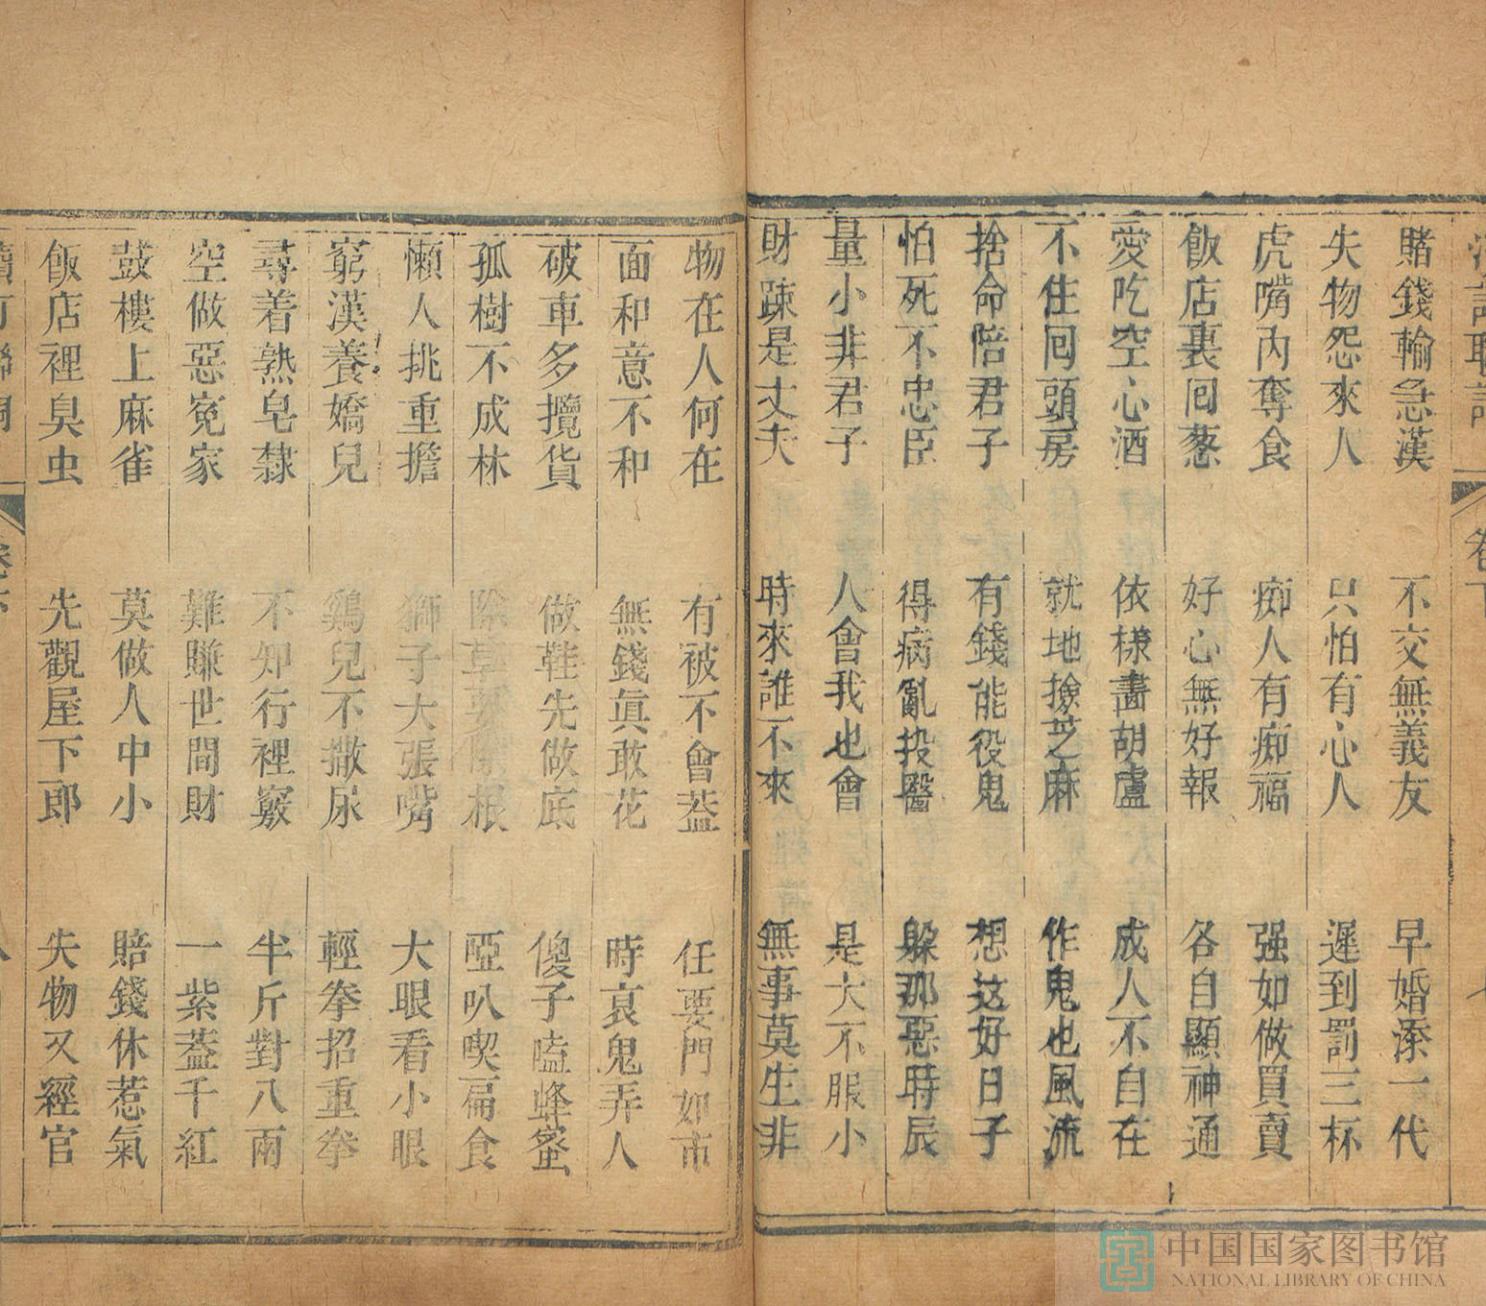 賭錢輸急漢　不交無義友　早婚添一代
失物怨來人　只怕有心人　遲到罰三杯
虎嘴內奪食　痴人有痴福　强如做買賣
飯店裏回葱　好心無好報　各自顯神通
愛吃空心酒　依樣畵胡盧　成人不自在
不住回頭房　就地撿芝麻　作鬼也風流
捨命陪君子　有錢能役鬼　想这好日子
怕死不忠臣　得病亂投醫　躲那惡時辰
量小非君子　人會我也會　是大不服小
財踈是丈夫　時來誰不來　無事莫生非
物在人何在　有被不會葢　任要門如市
面和意不和　無錢眞敢花　時哀鬼弄人
破車多攬貨　做鞋先做底　傻子嗑蜂蜜
孤樹不成林　除草要除根　啞叭喫扁食
懶人挑重擔　獅子大張嘴　大眼看小眼
窮漢養嬌兒　鷄兒不撒尿　輕拳招重拳
尋着熟皂隸　不知行裡竅　半斤對八兩
空做惡寃家　難賺世間財　一紫葢千紅
鼓樓上麻雀　莫做人中小　賠錢休惹氣
飯店裡臭虫　先觀屋下郎　失物又經官
卷下
中国国家图书馆
NATIONAL LIBRARY OF CHINA